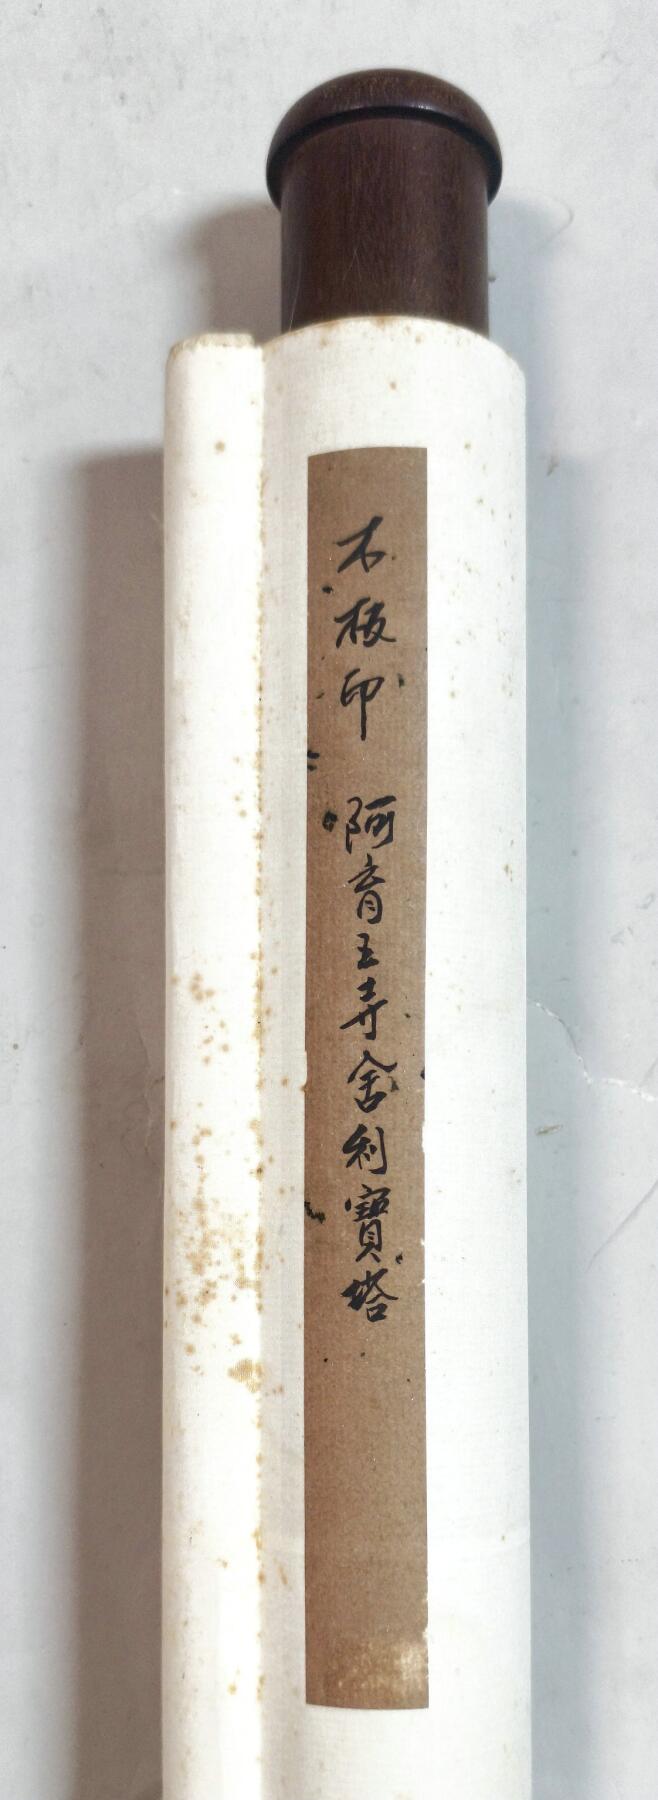 木板印 阿育王寺舍利寶塔